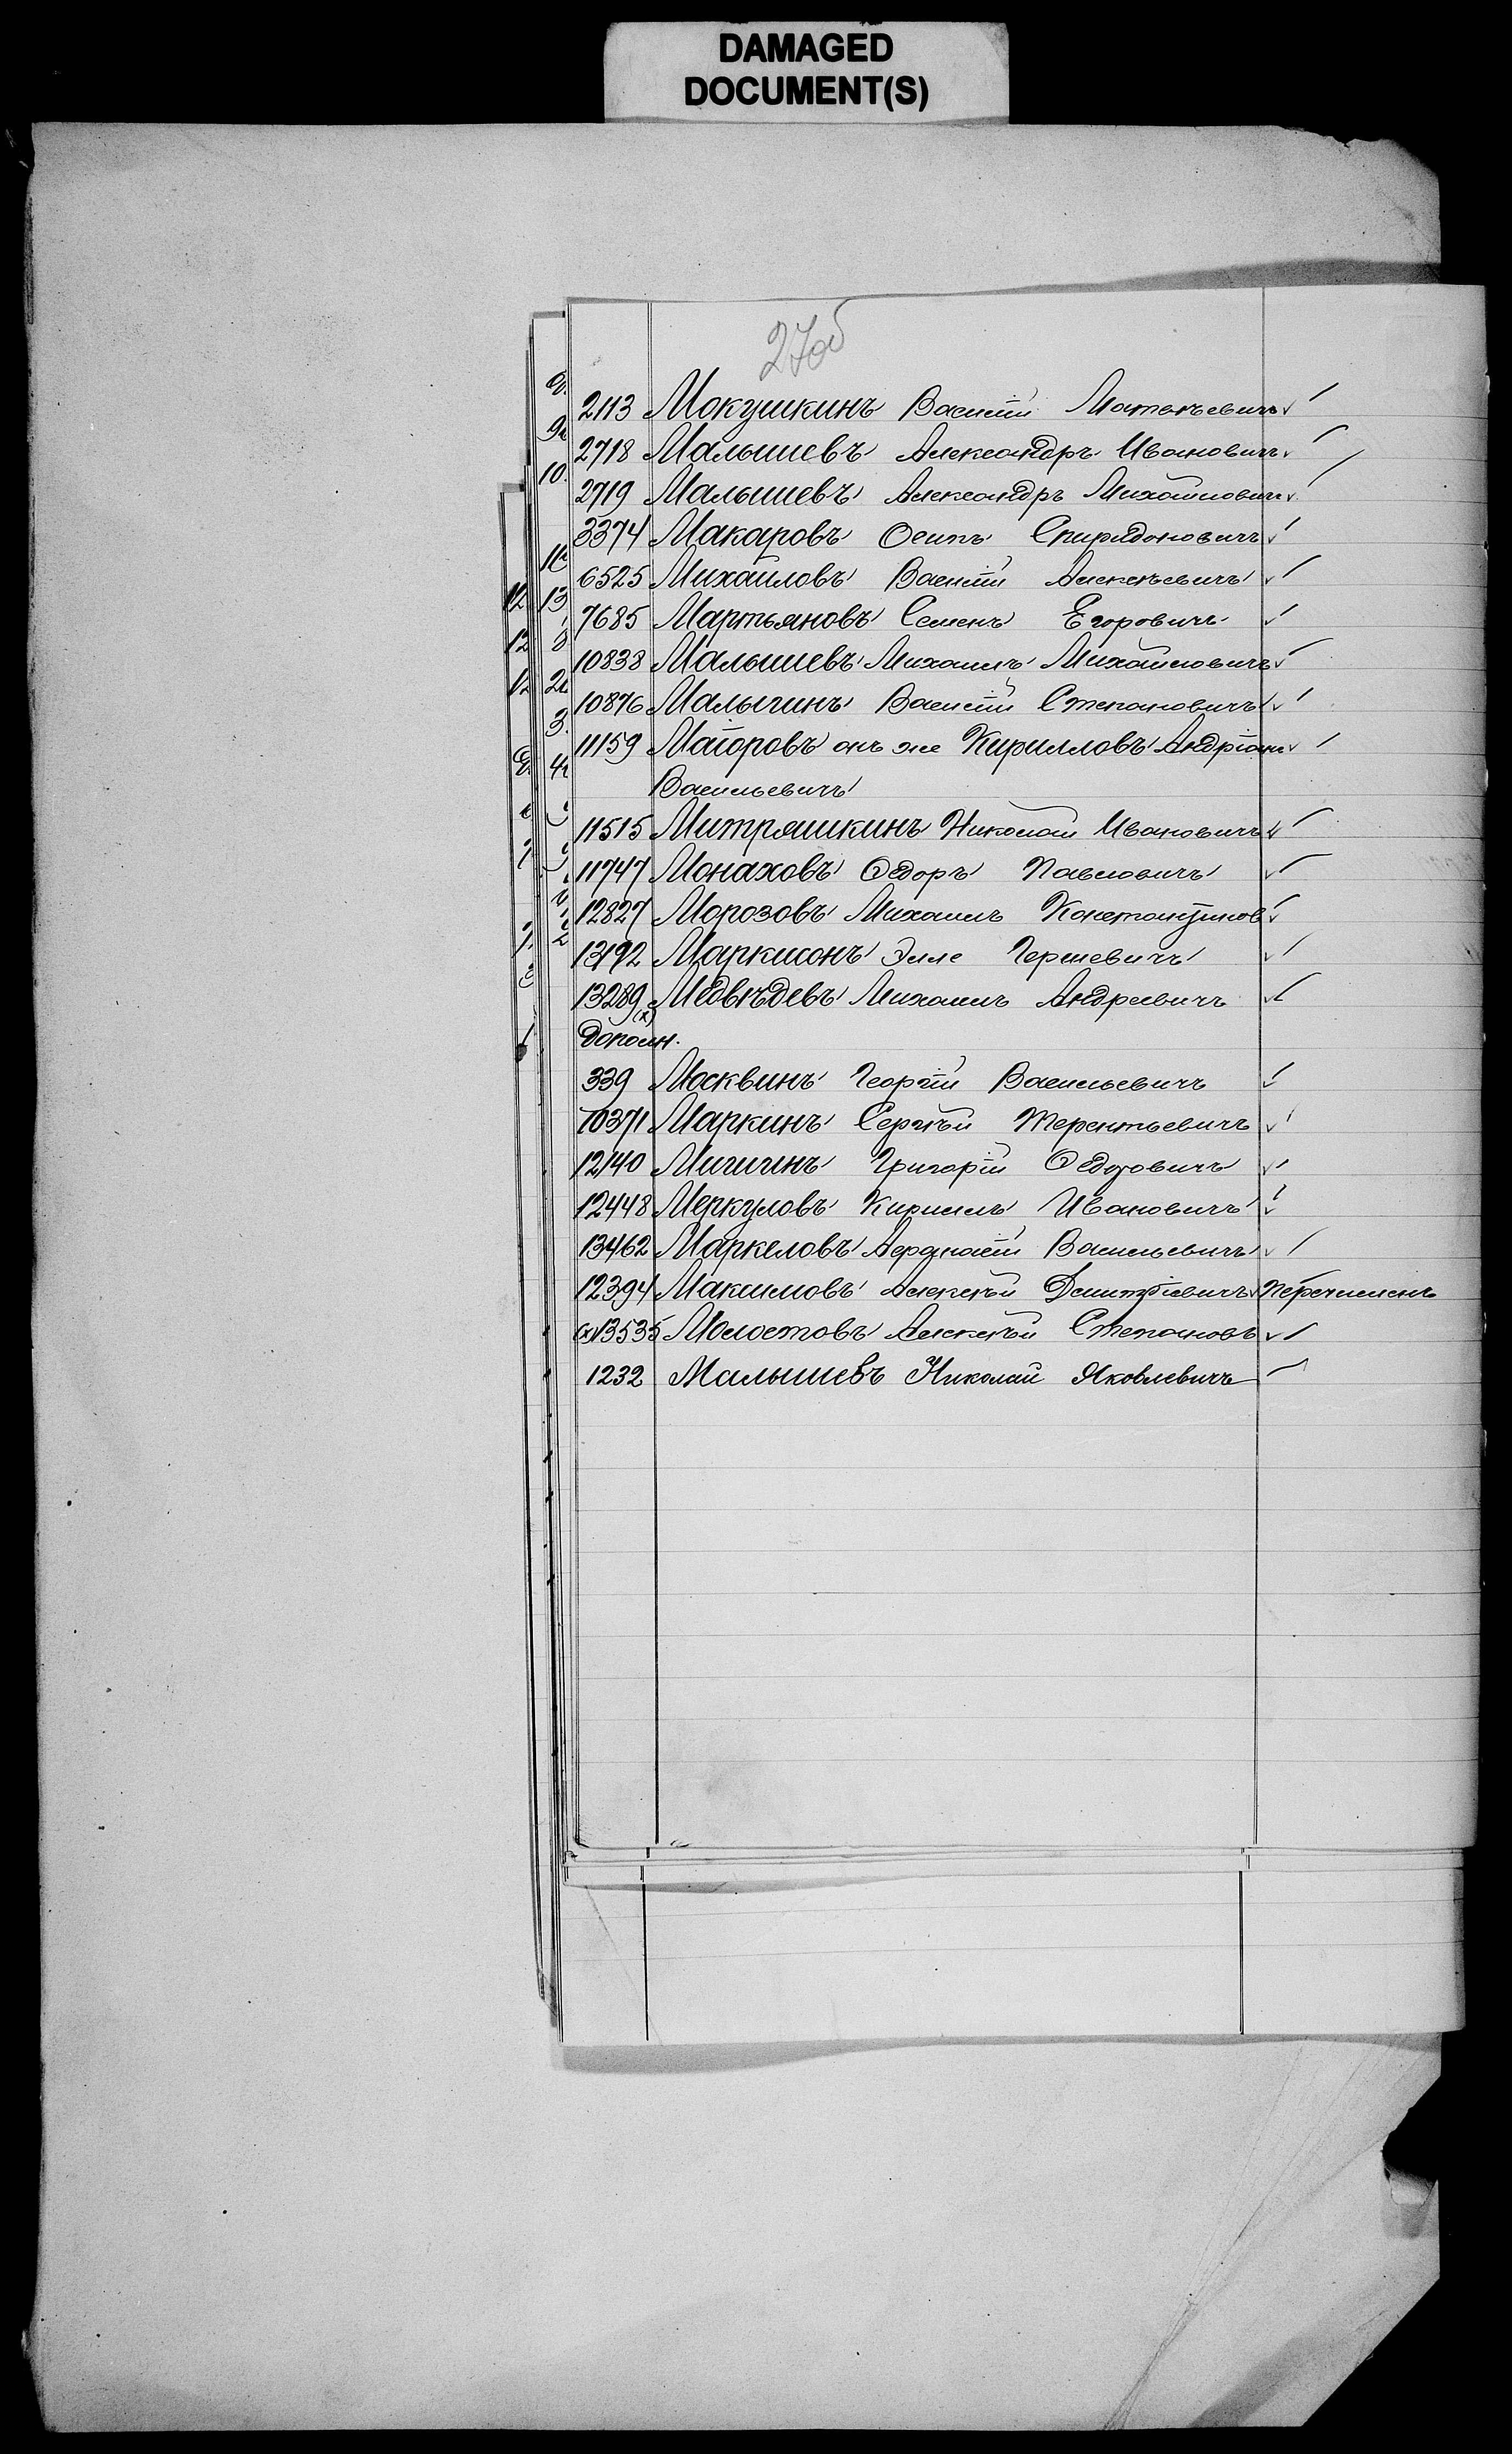 DAMAGED
DOCUMENT(S)
27об
2113 Мокушкинъ Василій Матвѣевичъ
2718 Малышевъ Александръ Ивановичъ
2719 Малышевъ Александръ Михайловичъ
3374 Макаровъ Осипъ Спиридоновичъ
6525 Михайловъ Василій Алексѣевичъ
7685 Мартьяновъ Семенъ Егоровичъ
10838 Малышевъ Михаилъ Михайловичъ
10876 Малыгинъ Василій Степановичъ
11159 Маіоровъ онъ же Кирилловъ Андріанъ
Васильевичъ
11515 Митряшкинъ Николай Ивановичъ
11747 Монаховъ Ѳедоръ Павловичъ
12827 Морозовъ Михаилъ Константинов
13192 Маркисонъ Элле Гершевичъ
13289 (х) Медвѣдевъ Михаилъ Андреевичъ
Дополн.
339 Москвинъ Георгій Васильевичъ
10371 Маркинъ Сергѣй Терентьевичъ
12140 Мигигинъ Григорій Ѳедотовичъ
12448 Меркуловъ Кириллъ Ивановичъ
13462 Маркеловъ Афанасій Васильевичъ
12394 Максимовъ Алексѣй Дмитріевичъ перечисленъ
(х) 13535 Молостовъ Алексѣй Степановъ
1232 Малышевъ Николай Яковлевичъ